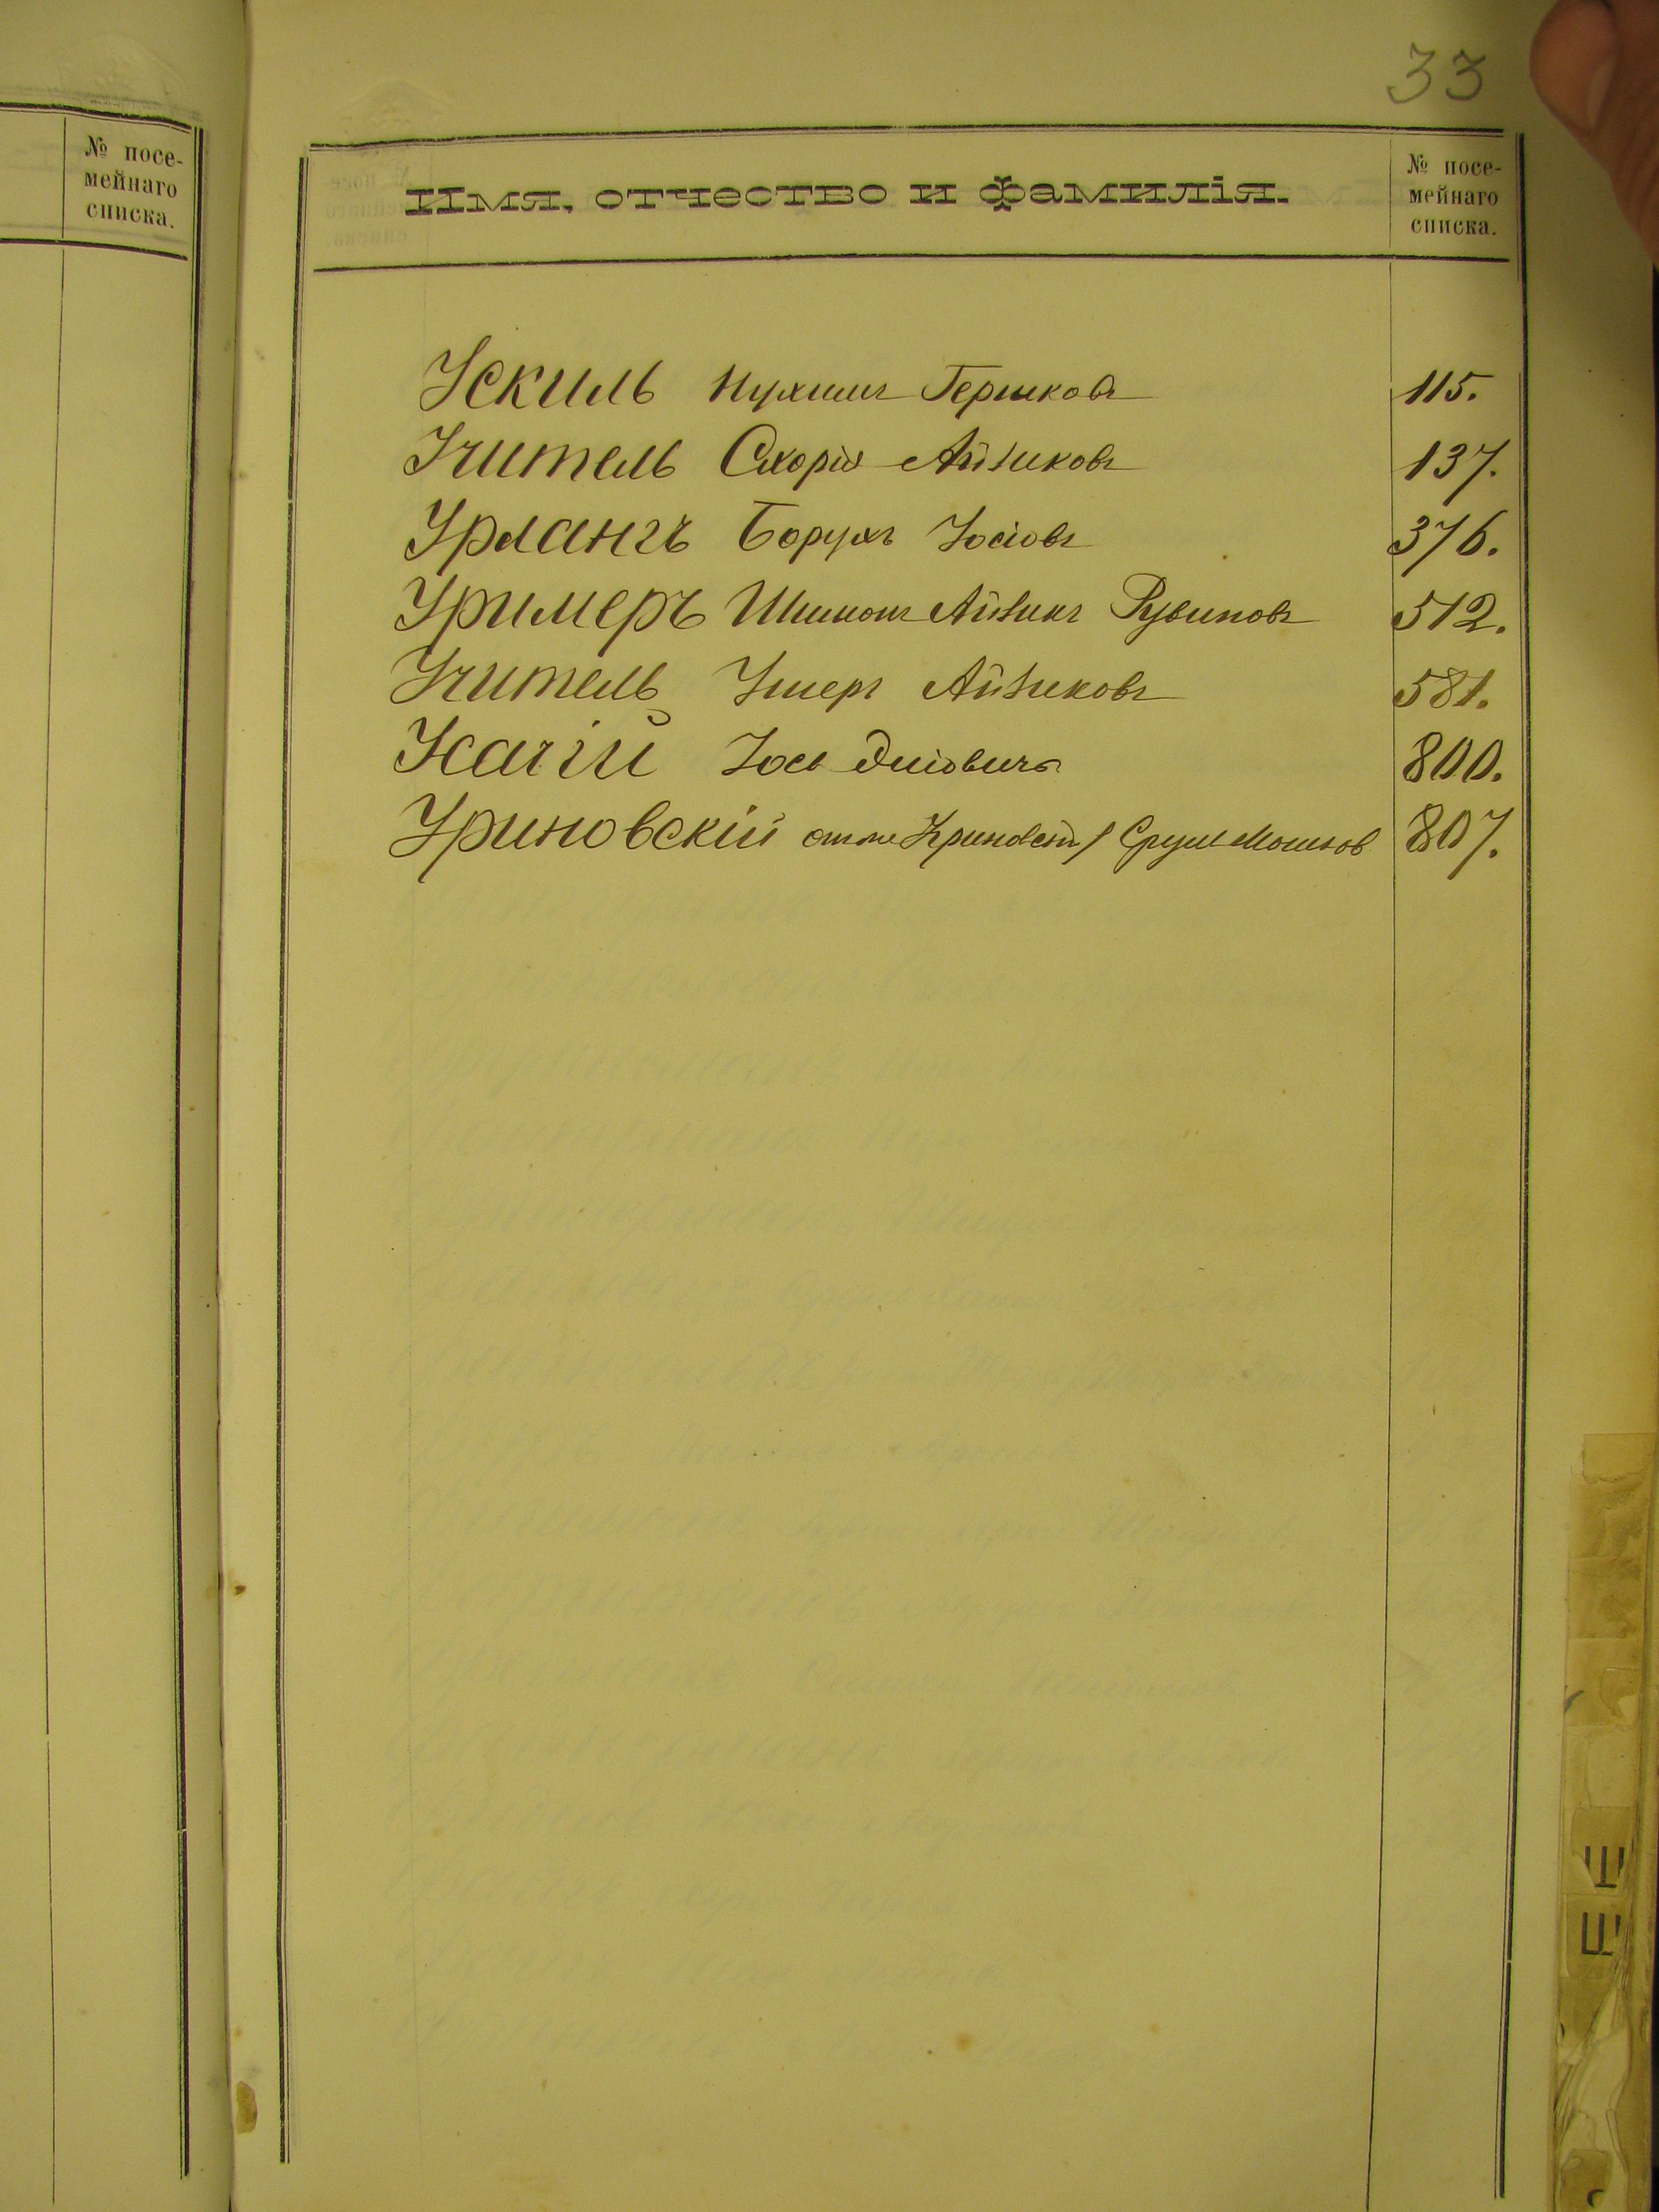 33
№ посе-
мейнаго
списка.
Имя, отчество и фамилія.
№ посе-
мейнаго
списка.
Ускиль Нухимъ Гершковъ 115.
Учитель Сухоръ Айзиковъ 137.
Урлангъ Борухъ Іосіовъ 376.
Уримеръ Шимонъ Айзикъ Рувиновъ 512.
Учитель Ушеръ Айзиковъ 581.
Усачій Іось 800.
Уриновскій онъ же Криновскій/ Сруль Мошков 807.
Ш
Щ